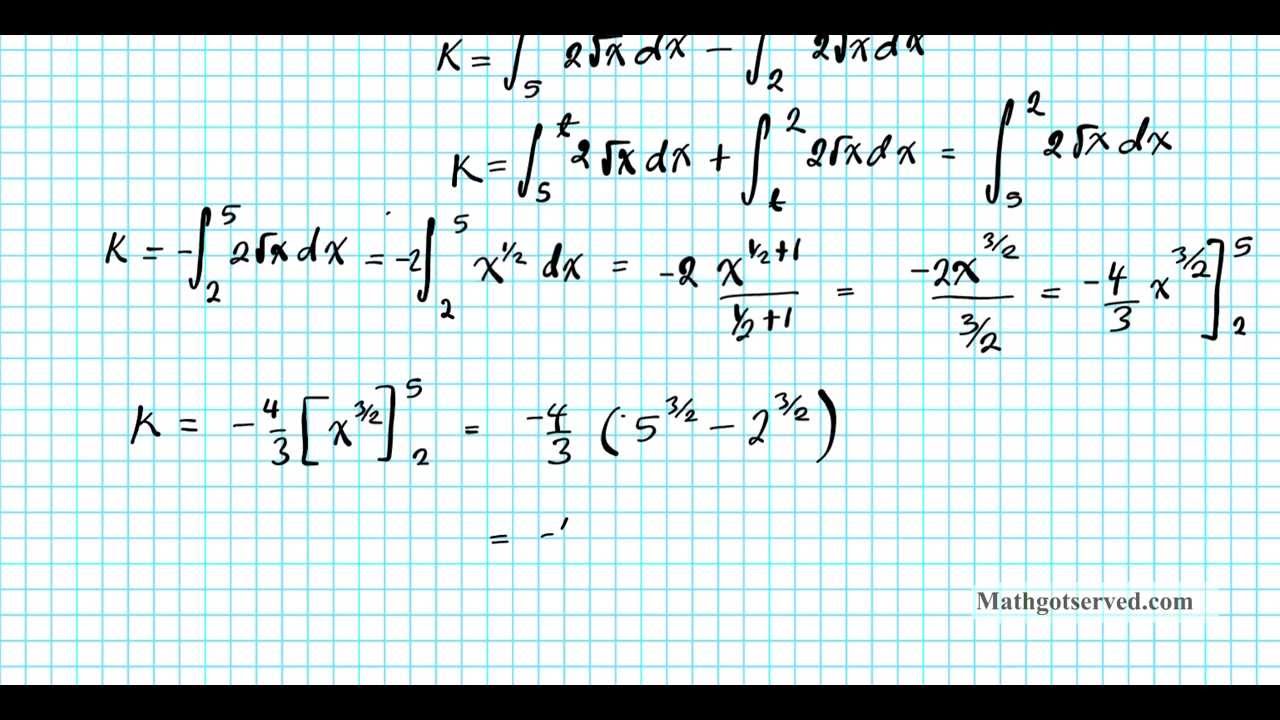 K = ∫₅ 2√x dx − ∫₂ 2√x dx
K = ∫₅ᵗ 2√x dx + ∫ₜ² 2√x dx = ∫₅² 2√x dx
K = -∫₂⁵ 2√x dx = -2∫₂⁵ x^{1/2} dx = -2 x^{1/2+1}/(1/2+1) = -2x^{3/2}/(3/2) = -4/3 x^{3/2}]₂⁵
K = -4/3 [x^{3/2}]₂⁵ = -4/3 (5^{3/2} − 2^{3/2})
= -
Mathgotserved.com